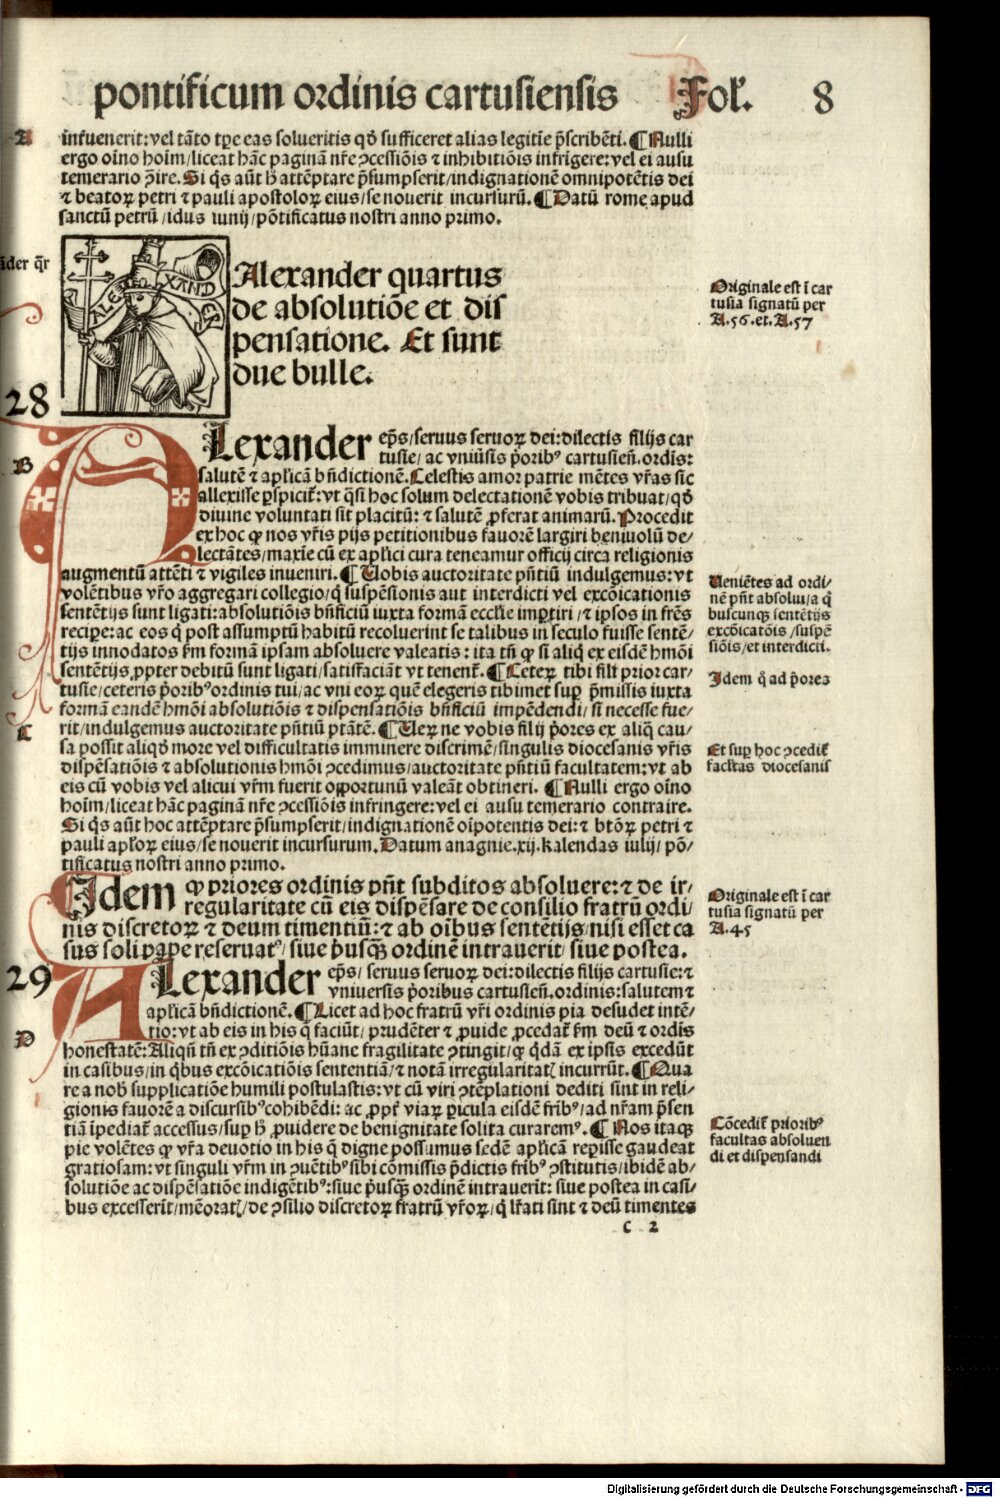 pontificum ordinis cartusiensis Fol'. 8
A
inſuenerit: vel tãto tꝑe eas solueritis qđ sufficeret alias legitĩe p̃scribẽti. ¶ Nulli
ergo oĩno hoĩm/liceat hãc paginã nr̃e ꝯcessiõis ⁊ inhibitiõis infrĩgere: vel ei ausu
temerario ꝯ̃ire. Si q̃s aũt h̃ attẽptare p̃sumpserit/indignationẽ omnipotẽtis dei
⁊ beatoꝝ petri ⁊ pauli apostoloꝝ eius/se nouerit incursurũ. ¶ Datũ rome apud
sanctũ petrũ/idus iunij/põtificatus nostri anno primo.
ãder q̃r
ALEXANDER
Alexander quartus
de absolutiõe et dis
pensatione. Et sunt
due bulle.
Originale est ĩ car
tusia signatũ per
A.56.et.A.57
28
B
Alexander ep̃s/seruus seruoꝝ dei: dilectis filijs car
tusie/ac vniũsis p̃oribꝰ cartusieñ. ordĩs:
salutẽ ⁊ apl̃icã bñdictionẽ. Celestis amor patrie mẽtes vr̃as sic
allexisse ꝑspicit̃: vt q̃si hoc solum delectationẽ vobis tribuat/qđ
diuine voluntati sit placitũ: ⁊ salutẽ ꝓferat animarũ. Procedit
ex hoc ꝙ nos vr̃is pijs petitionibus fauorẽ largiri beniuolũ de/
lectãtes/maxĩe cũ ex apl̃ici cura teneamur officij circa religionis
augmentũ attẽti ⁊ vigiles inueniri. ¶ Uobis auctoritate p̃ntiũ indulgemus: vt
volẽtibus vr̃o aggregari collegio/q̃ suspẽsionis aut interdicti vel excõicationis
sentẽtijs sunt ligati: absolutiõis bñficiũ iuxta formã eccl̃ie imꝑtiri/⁊ ipsos in fr̃es
reciꝑe: ac eos q̃ post assumptũ habitũ recoluerint se talibus in seculo fuisse sentẽ/
tijs innodatos ẜm formã ipsam absoluere valeatis: ita tñ ꝙ si aliq̃ ex eisdẽ hm̃oi
sentẽtijs ꝓpter debitũ sunt ligati/satisfaciãt vt tenent̃. ¶ Ceterꝝ tibi fili prior car/
tusie/ceteris p̃oribꝰ ordinis tui/ac vni eoꝝ quẽ elegeris tibimet suꝑ p̃missis iuxta
formã eandẽ hm̃oi absolutiõis ⁊ dispensatiõis bñficiũ impẽdendi/si necesse fue/
rit/indulgemus auctoritate p̃ntiũ ptãtẽ. ¶ Ueꝝ ne vobis filij p̃ores ex aliq̃ cau/
sa possit aliqđ more vel difficultatis imminere discrimẽ/singulis diocesanis vr̃is
dispẽsatiõis ⁊ absolutionis hm̃oi ꝯcedimus/auctoritate p̃ntiũ facultatem: vt ab
eis cũ vobis vel alicui vr̃m fuerit oꝑortunũ valeãt obtineri. ¶ Nulli ergo oĩno
hoĩm/liceat hãc paginã nr̃e ꝯcessiõis infringere: vel ei ausu temerario contraire.
Si q̃s aũt hoc attẽptare p̃sumpserit/indignationẽ oĩpotentis dei: ⁊ btõꝝ petri ⁊
pauli apl̃oꝝ eius/se nouerit incursurum. Datum anagnie. xij. kalendas iulij/põ/
tificatus nostri anno primo.
Ueniẽtes ad ordi/
nẽ pñt absolui/a q̃
buscunqꝫ sentẽtijs
excõicatõis/suspẽ
siõis/et interdicti.
Idem q̃ ad p̃ores
C
Et suꝑ hoc ꝯcedit̃
facl̃tas diocesanis
Idem ꝙ priores ordinis pñt subditos absoluere: ⁊ de ir/
regularitate cũ eis dispẽsare de consilio fratrũ ordi/
nis discretoꝝ ⁊ deum timentiũ: ⁊ ab oĩbus sentẽtijs/nisi esset ca
sus soli pape reseruatꝰ/siue p̃usqꝫ̃ ordinẽ intrauerit/siue postea.
Originale est ĩ car
tusia signatũ per
A.45
29
Alexander ep̃s/seruus seruoꝝ dei: dilectis filijs cartusie: ⁊
vniuersis p̃oribus cartusieñ. ordinis: salutem ⁊
apl̃icã bñdictionẽ. ¶ Licet ad hoc fratrũ vr̃i ordinis pia desudet intẽ/
tio: vt ab eis in his q̃ faciũt/prudẽter ⁊ ꝓuide ꝓcedat̃ ẜm deũ ⁊ ordĩs
D
honestatẽ: Aliqñ tñ ex ꝯditiõis hũane fragilitate ꝯtingit/ꝙ q̃dã ex ipsis excedũt
in casibus/in q̃bus excõicatiõis sententiã/⁊ notã irregularitatꝭ incurrũt. ¶ Qua
re a nob̃ supplicatiõe humili postulastis: vt cũ viri ꝯtẽplationi dediti sint in reli/
gionis fauorẽ a discursibꝰ cohibẽdi: ac ꝓpt̃ viaꝝ ꝑicula eisdẽ fr̃ibꝰ/ad nr̃am p̃sen
tiã ĩpediat̃ accessus/suꝑ h̃ ꝓuidere de benignitate solita curaremꝰ. ¶ Nos itaqꝫ
pie volẽtes ꝙ vr̃a deuotio in his q̃ digne possumus sedẽ apl̃icã reꝑisse gaudeat
gratiosam: vt singuli vr̃m in ꝯuẽtibꝰ sibi cõmissis p̃dictis fr̃ibꝰ ꝯstitutis/ibidẽ ab/
solutiõe ac dispẽsatiõe indigẽtibꝰ: siue p̃usqꝫ̃ ordinẽ intrauerĩt: siue postea in casi/
bus excesserĩt/mẽoratꝭ/de ꝯsilio discretoꝝ fratrũ vr̃oꝝ/q̃ lr̃ati sint ⁊ deũ timentes
Cõcedit̃ prioribꝰ
facultas absoluen
di et dispensandi
c 2
Digitalisierung gefördert durch die Deutsche Forschungsgemeinschaft - DFG